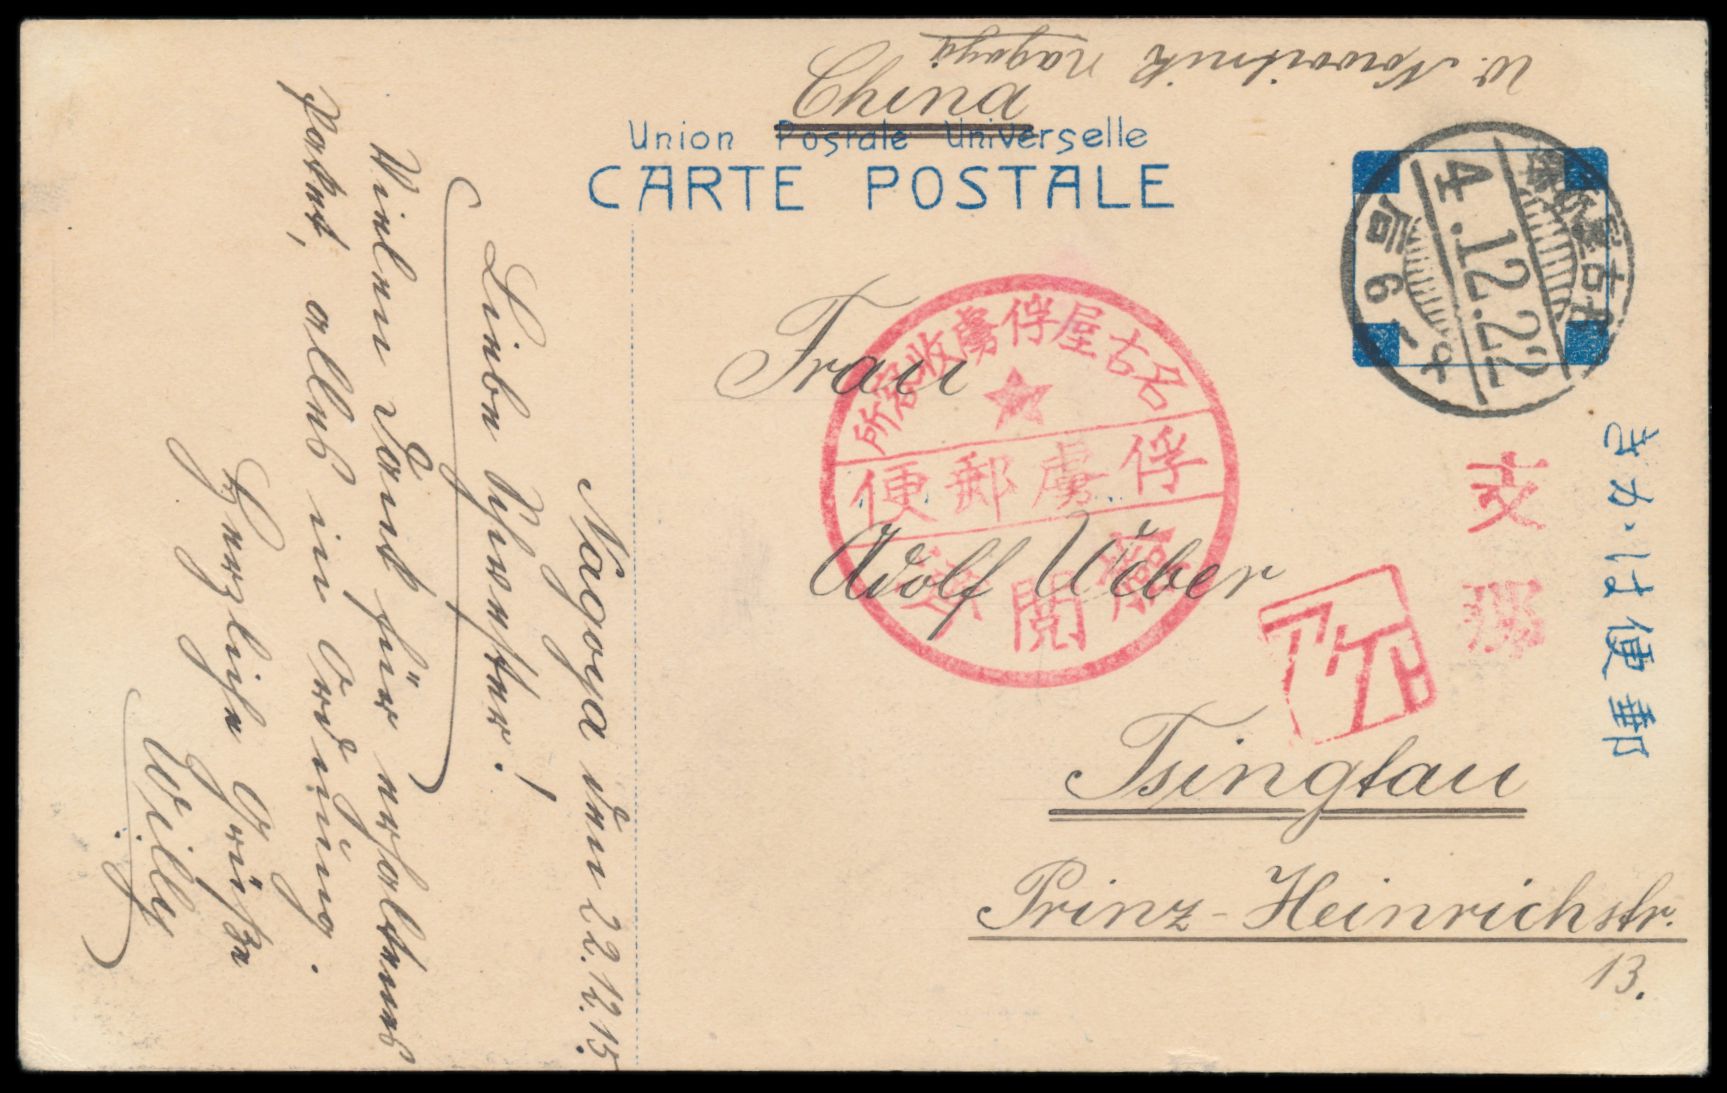 W. Nowoitnik Nagoya
China
Union Postale Universelle
CARTE POSTALE
名古屋
4.12.22
后6-8
郵便はかき
支那
名古屋俘虜收容所
俘虜郵便
檢閲濟
Frau
Adolf Weber
Tsingtau
Prinz-Heinrichstr.
13.
Nagoya den 22.12.15.
Liebe Schwester!
Vielen Dank für erhaltenes
Paket, alles in Ordnung.
Herzliche Grüße
Willy